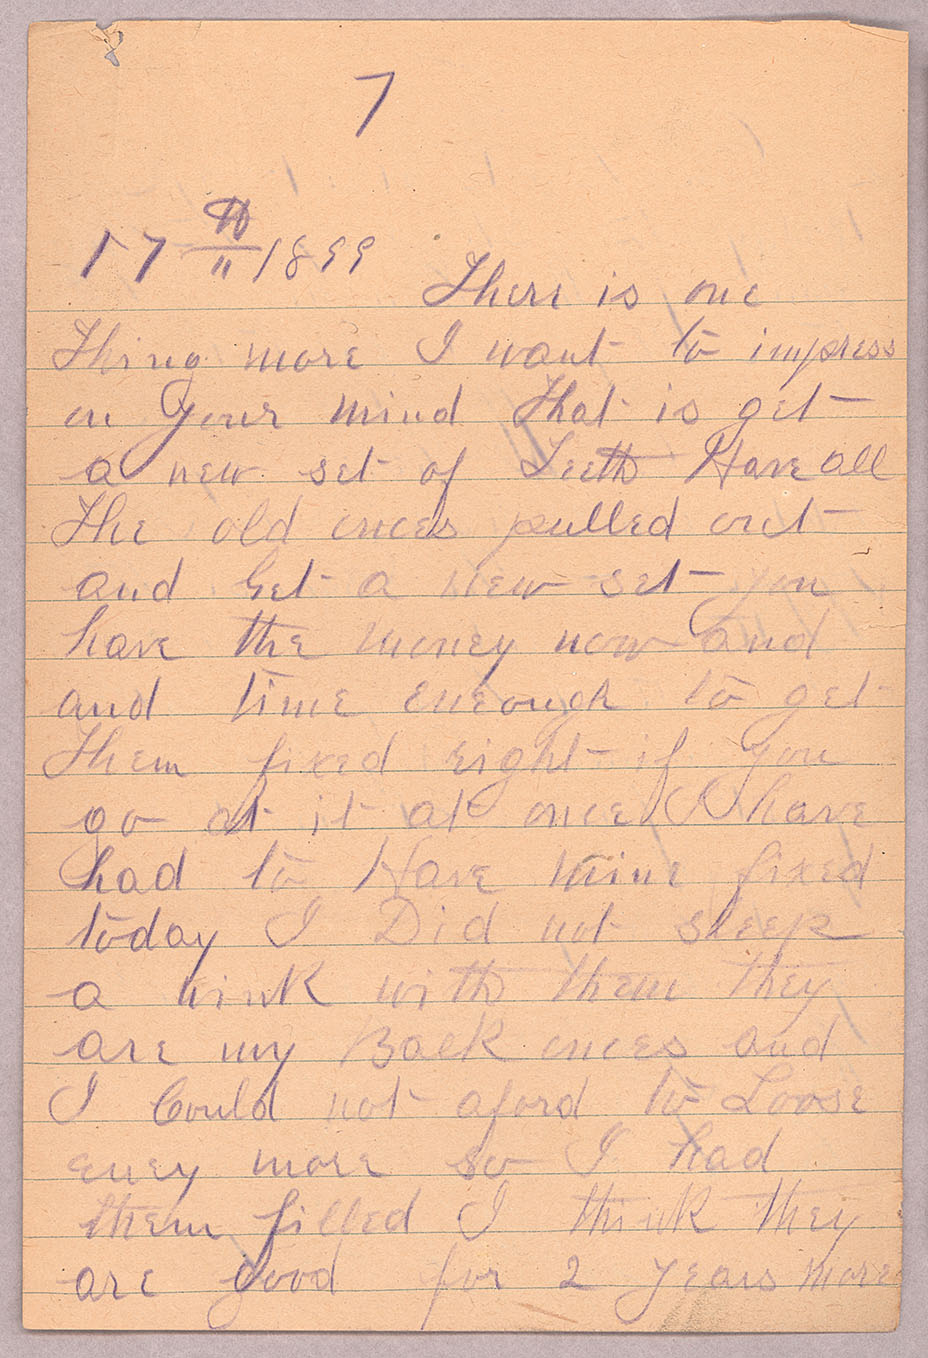 7
17 11 1899 There is one
Thing more I want to impress
on your mind That is get
a new set of Teeth Have all
The old onces pulled out
and Get a new set you
have the money now and
and time enough to get
Them fixed right if you
go at it at once I have
had to Have mine fixed
today I Did not sleep
a wink with them they
are my Back onces and
I Could not aford to Loose
eney more so I had
them filled I think they
are good for 2 years more